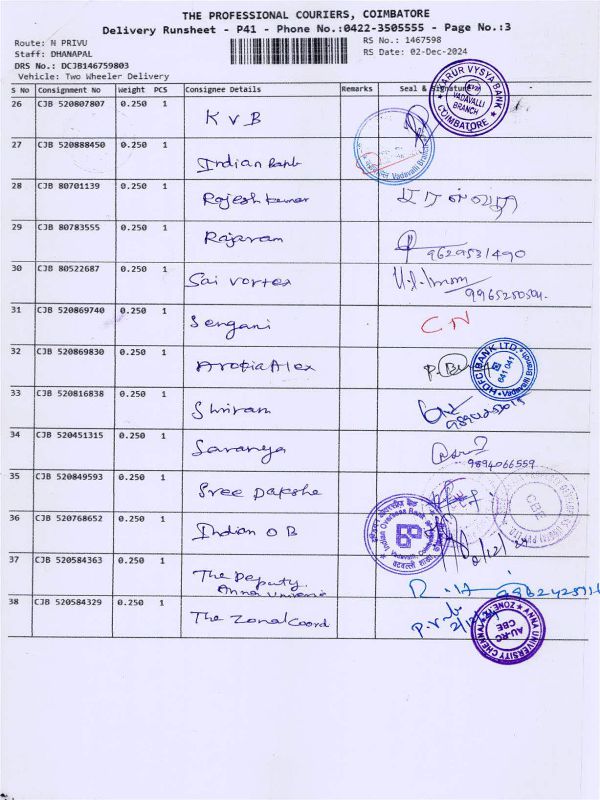 THE PROFESSIONAL COURIERS, COIMBATORE
Delivery Runsheet - P41 - Phone No.:0422-3505555 - Page No.:3
Route: N PRIVU
RS No.: 1467598
Staff: DHANAPAL
RS Date: 02-Dec-2024
DRS No.: DCJB146759803
Vehicle: Two Wheeler Delivery
S No Consignment No Weight PCS Consignee Details Remarks Seal & Signature
26 CJB 520807807 0.250 1 KVB
KARUR VYSYA BANK VADAVALLI BRANCH COIMBATORE
27 CJB 520888450 0.250 1 Indian Bank
Vadavalli Branch
28 CJB 80701139 0.250 1 Rajesh kumar
29 CJB 80783555 0.250 1 Rajaram
9629531490
30 CJB 80522687 0.250 1 Sai vortex
9965250504
31 CJB 520869740 0.250 1 Sengani CN
32 CJB 520869830 0.250 1 Aropia Alex
HDFC BANK LTD. 641 041 Vadavalli Branch
33 CJB 520816838 0.250 1 Shriram
34 CJB 520451315 0.250 1 Saranya
9894066559
35 CJB 520849593 0.250 1 Sree Dakshe
CBE
36 CJB 520768652 0.250 1 Indian OB
Indian Overseas Bank
2/12/24
37 CJB 520584363 0.250 1 The Deputy
Anna
38 CJB 520584329 0.250 1 The Zonal Coord
ANNA UNIVERSITY CHENNAI AU-RC CBE